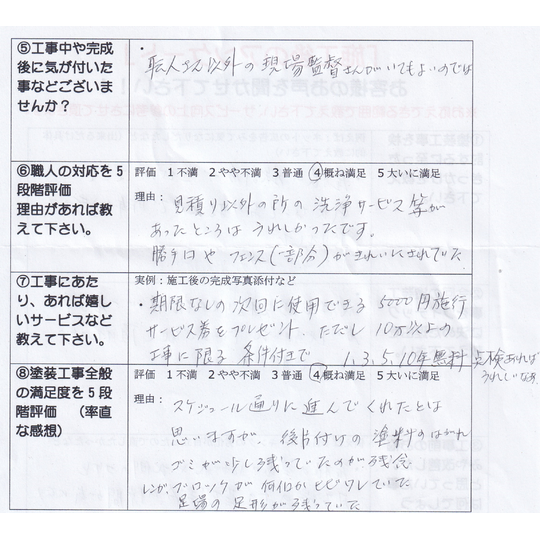 ⑤工事中や完成
後に気が付いた
事などございま
せんか？
・
職人さん以外の現場監督さんがいてもよいのでは
⑥職人の対応を5
段階評価
理由があれば教
えて下さい。
評価 1不満 2やや不満 3普通 ④概ね満足 5大いに満足
理由：
見積り以外の所の洗浄サービス等が
あったところはうれしかったです。
勝手口やフェンス(一部分)がきれいにされていた
⑦工事にあた
り、あれば嬉し
いサービスなど
教えて下さい。
実例：施工後の完成写真添付など
・期限なしの次回に使用できる 5000円施行
サービス券をプレゼント、ただし10万以上の
工事に限る 条件付きで 1,3,5,10年無料点検あれば
うれしいなあ
⑧塗装工事全般
の満足度を5段
階評価 （率直
な感想）
評価 1不満 2やや不満 3普通 ④概ね満足 5大いに満足
理由：
スケジュール通りに進んでくれたとは
思いますが、後片付けの塗料のはがれ
ゴミが少し残っていたのが残念
レンガ、ブロックが何個かヒビワレていた
足場の足形が残っていた